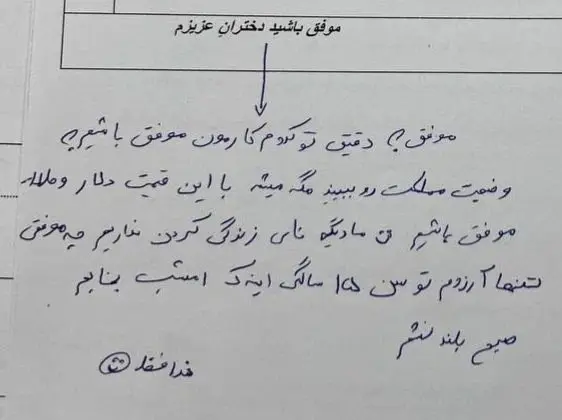 موفق باشید دخترانِ عزیزم
موفق چی دقیق تو کدوم کارمون موفق باشیم چی
وضعیت مملکت رو ببینید مگه میشه با این قیمت دلار و طلا
موفق باشیم من مادیگه نای زندگی کردن نداریم چه موفقی
تنها آرزوم تو سن ۱۵ سالگی اینه که امشب بخوابم
صبح بلند نشم
خدافظ